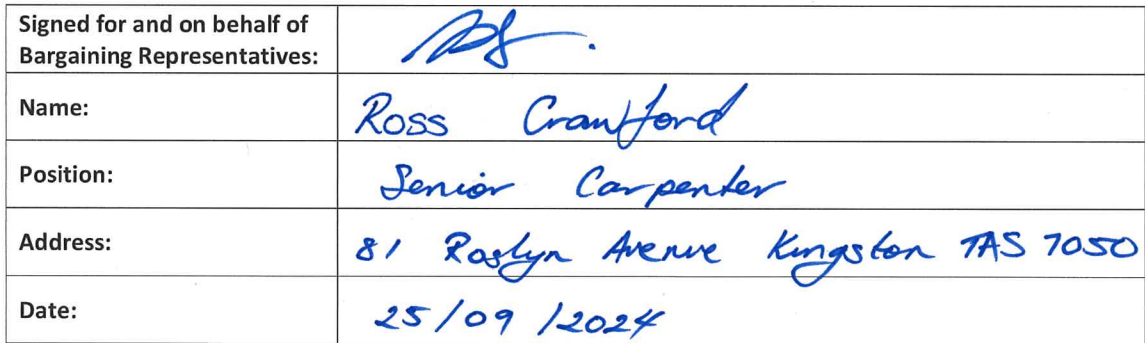 Signed for and on behalf of
Bargaining Representatives:
Name: Ross Crawford
Position: Senior Carpenter
Address: 81 Roslyn Avenue Kingston TAS 7050
Date: 25/09/2024